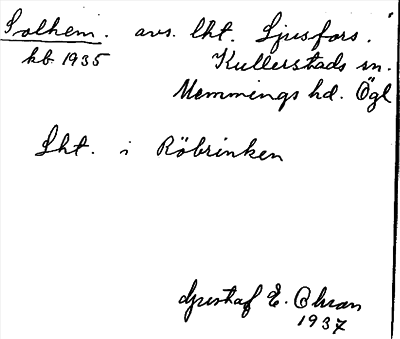 Solhem. avs. lht. Ljusfors.
kb 1935 Kullerstads sn.
Memmings hd. Ögl
Lht. i Röbrinken
Gustaf E. Ohson
1937